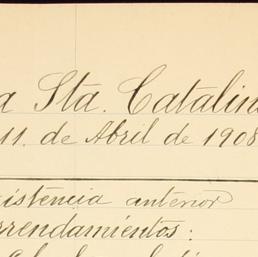 a Sta. Catalin
11. de Abril de 1908
istencia anterior
rrendamientos: